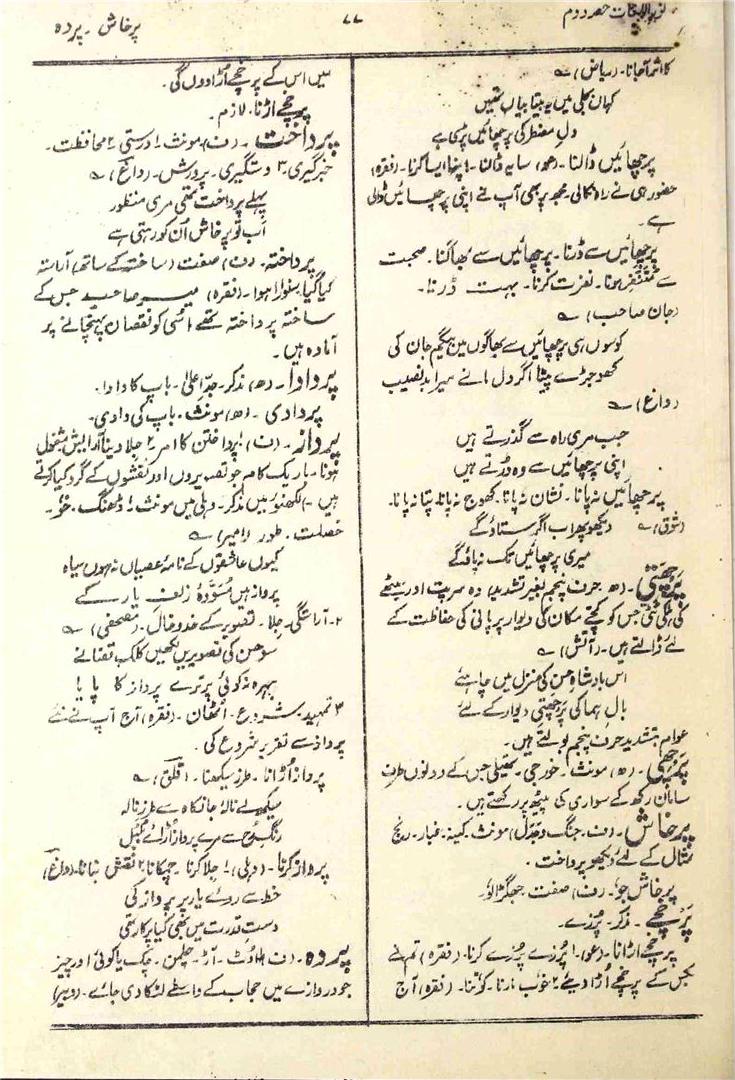 نور اللغات حصہ دوم
۷۷
پرخاش ۔ پردہ
کا اثر آجانا۔ (ریاض) ؎
کہاں بجلی میں یہ بیتابیاں تھیں
دلِ مضطر کی پرچھائیں پڑی ہے
پرچھائیں ڈالنا۔ (عو) سایہ ڈالنا۔ اپنا ایسا کرنا۔ (فقرہ)
حضور ہی نے راہ نکالی۔ مجھ پر بھی آپ نے اپنی پرچھائیں ڈالی
ہے۔
پرچھائیں سے ڈرنا۔ پرچھائیں سے بھاگنا۔ صحبت
سے متنفر ہونا۔ نفرت کرنا۔ بہت ڈرنا۔
(جان صاحب) ؎
کوسوں ہی پرچھائیں سے بھاگوں میں بیگم جان کی
کھوجڑے پیٹا اگر دل مانے میرا بدنصیب
(داغ) ؎
جب مری راہ سے گذرتے ہیں
اپنی پرچھائیں سے وہ ڈرتے ہیں
پرچھائیں نہ پانا۔ نشان نہ پانا۔ کھوج نہ پانا۔ پتا نہ پانا۔
(شوق) ؎ دیکھو پھر اب اگر ستاؤ گے
میری پرچھائیں تک نہ پاؤ گے
پرچھتی۔ (ھ۔ حرف پنجم بغیر تشدید) وہ سرپت اور سینٹھے
کی ٹٹی جس کو کچے مکان کی دیوار پر پانی کی حفاظت کے
لئے ڈالتے ہیں۔ (آتش) ؎
اس بادشاہِ حسن کی منزل میں چاہئے
بالِ ہما کی پرچھتی دیوار کے لئے
عوام بتشدید حرف پنجم بولتے ہیں۔
پرچھی۔ (ھ) مونث۔ خورجی۔ تھیلی جس کے دونوں طرف
سامان رکھ کے سواری کی پیٹھ پر رکھتے ہیں۔
پرخاش۔ (ف۔ جنگ وجدل) مونث۔ کینہ۔ غبار۔ رنج
مثال کے لئے دیکھو پرداخت۔
پرخاش جو۔ (ف) صفت۔ جھگڑالو۔
پرخچے۔ مذکر۔ پرزے۔
پرخچے اڑانا۔ (عو) ۱ پرزے پرزے کرنا۔ (فقرہ) تم نے
بجس کے پرخچے اڑا دیئے ۲ خوب مارنا۔ کوٹنا۔ (فقرہ) آج
میں اس کے پرخچے اڑا دوں گی۔
پرخچے اڑنا۔ لازم۔
پرداخت۔ (ف) مونث۔ ۱ درستی ۲ محافظت۔
خبرگیری۔ ۳ دستگیری۔ پرورش۔ (داغ) ؎
پہلے پرداخت تھی مری منظور
اب تو پرخاش ان کو رہتی ہے
پرداختہ۔ (ف) صفت (ساختہ کے ساتھ) آراستہ
کیا گیا۔ سنوارا ہوا۔ (فقرہ) میر صاحب جس کے
ساختہ پرداختہ تھے اسی کو نقصان پہنچانے پر
آمادہ ہیں۔
پردادا۔ (ھ) مذکر۔ جدِ اعلیٰ۔ باپ کا دادا۔
پردادی۔ (ھ) مونث۔ باپ کی دادی۔
پرداز۔ (ف) ۱ پرداختن کا امر ۲ جلا دینا آرایش مشغول
ہونا۔ باریک کام جو تصویروں اور نقشوں کے گرد کیا کرتے
ہیں۔ (لکھنؤ میں مذکر۔ دہلی میں مونث) ۱ ڈھنگ۔ خو۔
خصلت۔ طور (امیر) ؎
کیوں عاشقوں کے نامۂ عصیاں نہ ہوں سیاہ
پرداز ہیں مسودۂ زلف یار کے
۲۔ آراستگی۔ جلا۔ تصویر کے خدوخال۔ (مصحفی) ؎
سو حسن کی تصویریں لکھیں کلکِ قضا نے
بہرہ نہ کوئی پر ترے پرداز کا پایا
۳ تمہید۔ شروع۔ اٹھان۔ (فقرہ) آج آپ نے نئے
پرداز سے تقریر شروع کی۔
پرداز اڑانا۔ طرز سیکھنا۔ (قلق) ؎
سیکھ لے نالۂ جانکاہ سے طرزِ نالہ
رنگِ رخ سے مرے پرداز اڑالے بلبل
پرداز کرنا۔ (دہلی) ۱ جلا کرنا۔ چمکانا۔ ۲ نقش بنانا۔ (داغ)
خط سے روئے یار پر پرداز کی
دستِ قدرت میں بھی کیا پرکار تھی
پردہ۔ (ف) اوٹ۔ آڑ۔ چلمن۔ چک یا کوئی اور چیز
جو دروازے میں حجاب کے واسطے لٹکا دی جائے۔ (دبیر)